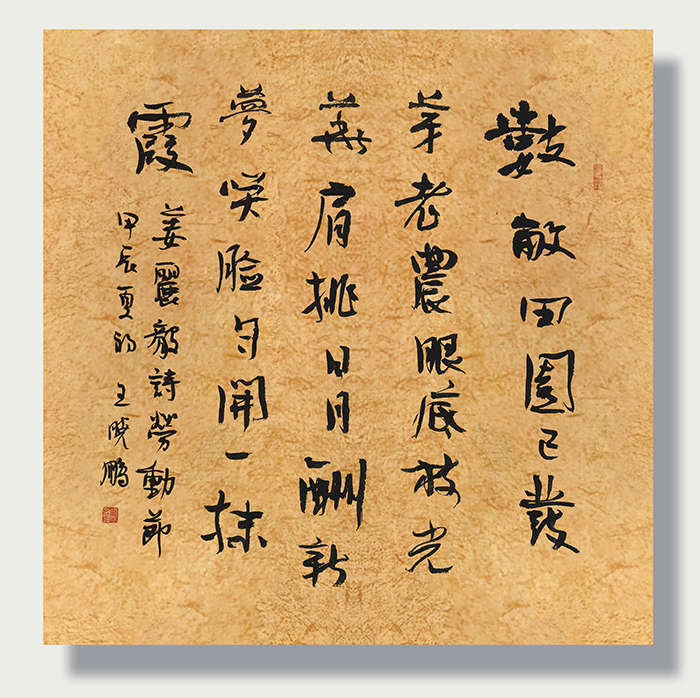 數畝田園已發
芽老農眼底放光
華肩挑日月酬新
夢咲臉勻開一抹
霞
姜麗毅詩勞動節
甲辰夏初 王曉鵬